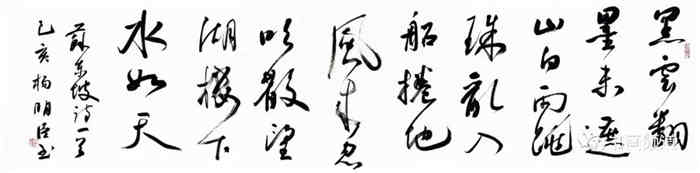 黑雲翻
墨未遮
山白雨跳
珠亂入
船捲地
風來忽
吹散望
湖樓下
水如天
蘇東坡詩一首
己亥楊明臣書